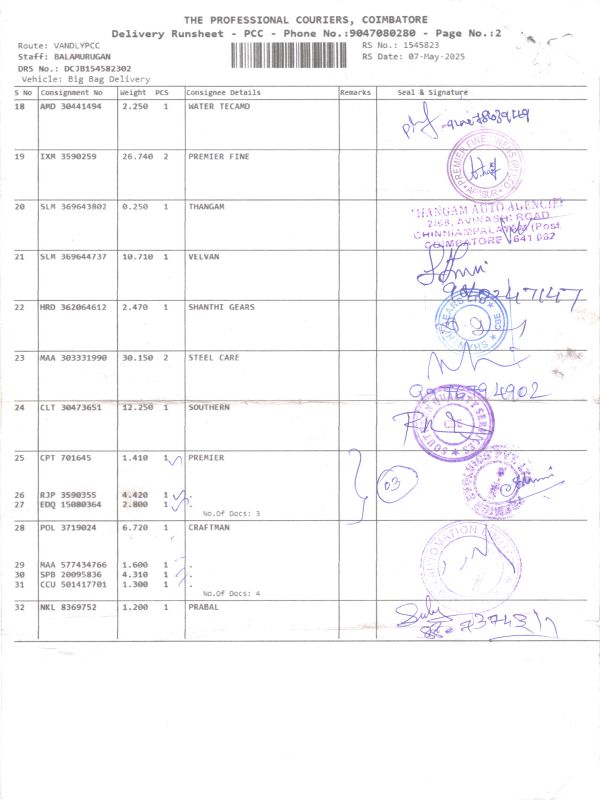 THE PROFESSIONAL COURIERS, COIMBATORE
Delivery Runsheet - PCC - Phone No.:9047080280 - Page No.:2
Route: VANDLYPCC RS No.: 1545823
Staff: BALAMURUGAN RS Date: 07-May-2025
DRS No.: DCJB154582302
Vehicle: Big Bag Delivery
S No Consignment No Weight PCS Consignee Details Remarks Seal & Signature
18 AMD 30441494 2.250 1 WATER TECAMD
19 IXM 3590259 26.740 2 PREMIER FINE
20 SLM 369643802 0.250 1 THANGAM
THANGAM AUTO AGENCIES
2/68, AVINASHI ROAD
CHINNIAMPALAYAM (Post
COIMBATORE 641 062
21 SLM 369644737 10.710 1 VELVAN
22 HRD 362064612 2.470 1 SHANTHI GEARS
23 MAA 303331990 30.150 2 STEEL CARE
9976794902
24 CLT 30473651 12.250 1 SOUTHERN
SOUTHERN QUALITY SERVICES
25 CPT 701645 1.410 1 PREMIER
03
26 RJP 3590355 4.420 1
27 EDQ 15080364 2.800 1
No.Of Docs: 3
28 POL 3719024 6.720 1 CRAFTMAN
29 MAA 577434766 1.600 1
30 SPB 20095836 4.310 1
31 CCU 501417701 1.300 1
No.Of Docs: 4
32 NKL 8369752 1.200 1 PRABAL